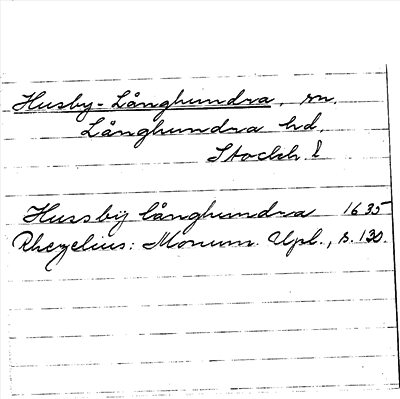 Husby-Långhundra, sn.
Långhundra hd.
Stockh. l
Hussbÿ långhundra 1635
Rhezelius: Monum. Upl., s. 130.